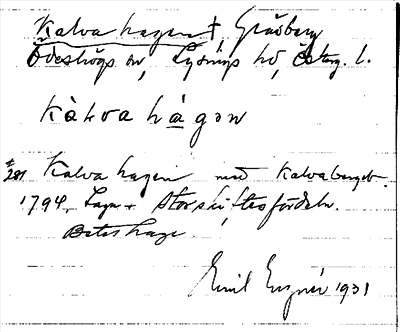 Kalvahagen † Gråberg
Ödeshögs sn, Lysings hd, Österg. l.
kàlva hágən
# 281 Kalvahagen med Kalvaberget
1794. Laga Storskiftesfördeln.
Beteshage
Emil 1931